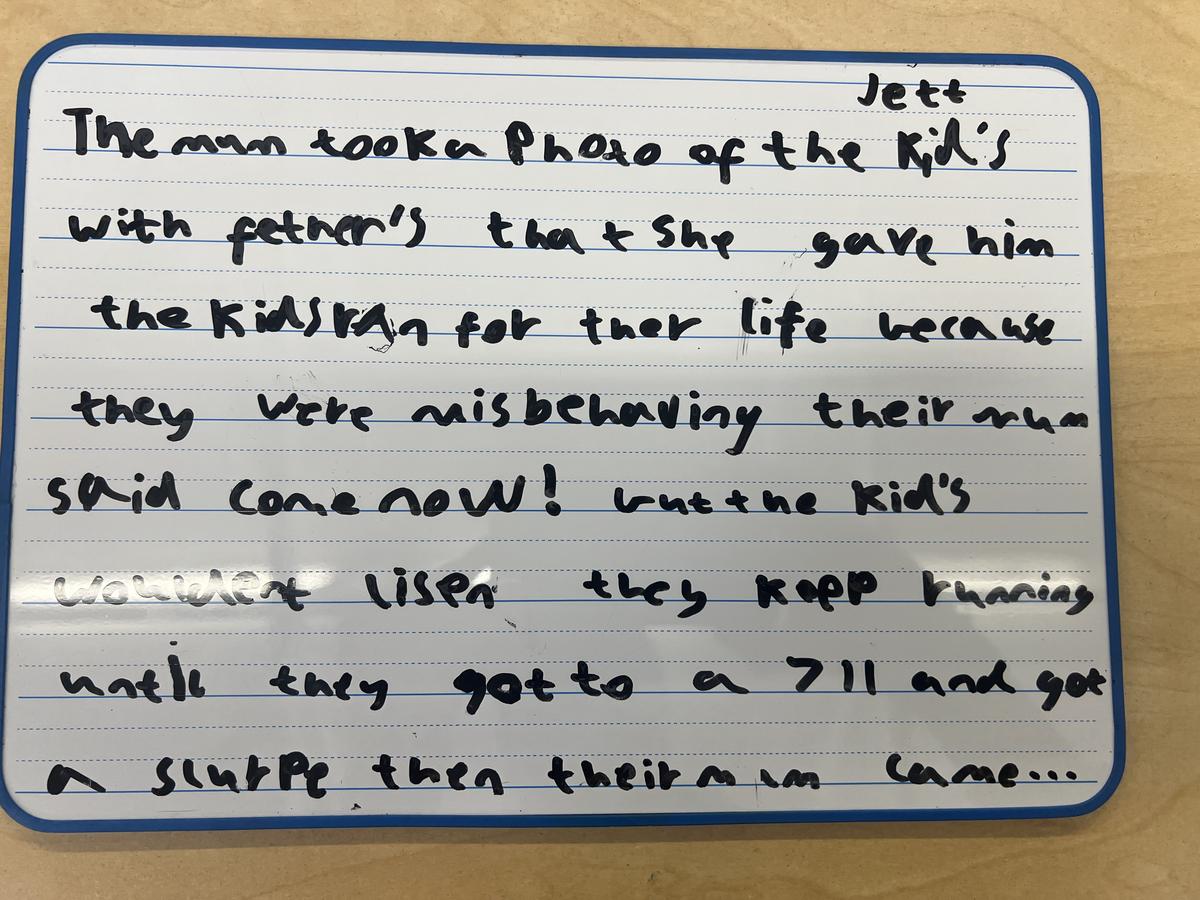 Jett
The mum took a Photo of the Kid's
with fether's that she gave him
the Kids ran for ther life because
they were misbehaving their mum
said come now! but the Kid's
wouldent lisen they kepp running
until they got to a 711 and got
a slurpe then their mum came...